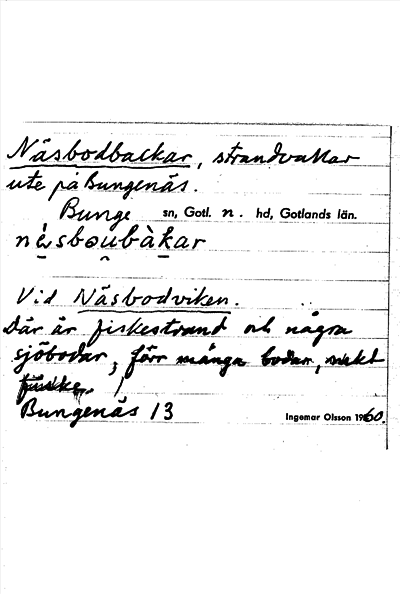 Näsbodbackar, strandvallar
ute på Bungenäs.
Bunge sn, Gotl. n. hd, Gotlands län.
nèsboubàkar
Vid Näsbodviken.
Där är fiskestrand och några
sjöbodar, förr många bodar, mest
fiske.
Bungenäs 13 Ingemar Olsson 1960.